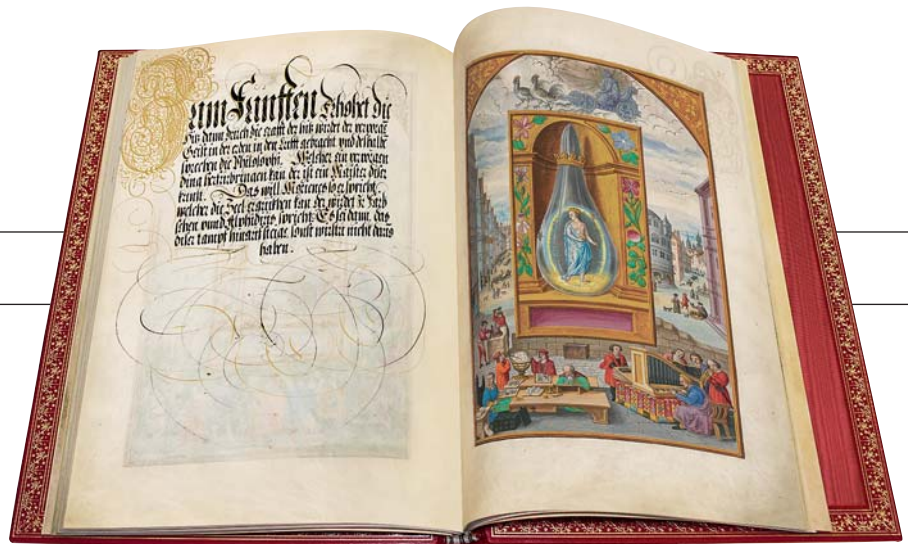 Zum Fünfften Erhöhet die
Hitz dann durch die crafft der hitz wirdet der verporgē
Geist in der erden in den Lufft gebracht und deßhalbē
sprechen die Philosophi. Welcher ein verporgen
ding herfurbringen kan der ist ein Maister diser
kunst. Das will Morienes so er spricht
welcher die Seel erquickhen kan der wirdet die Farb
sehen unnd Alphidius spricht Es sei dann das
diser tampf hinauf steige sonst wirstu nicht davō
haben.